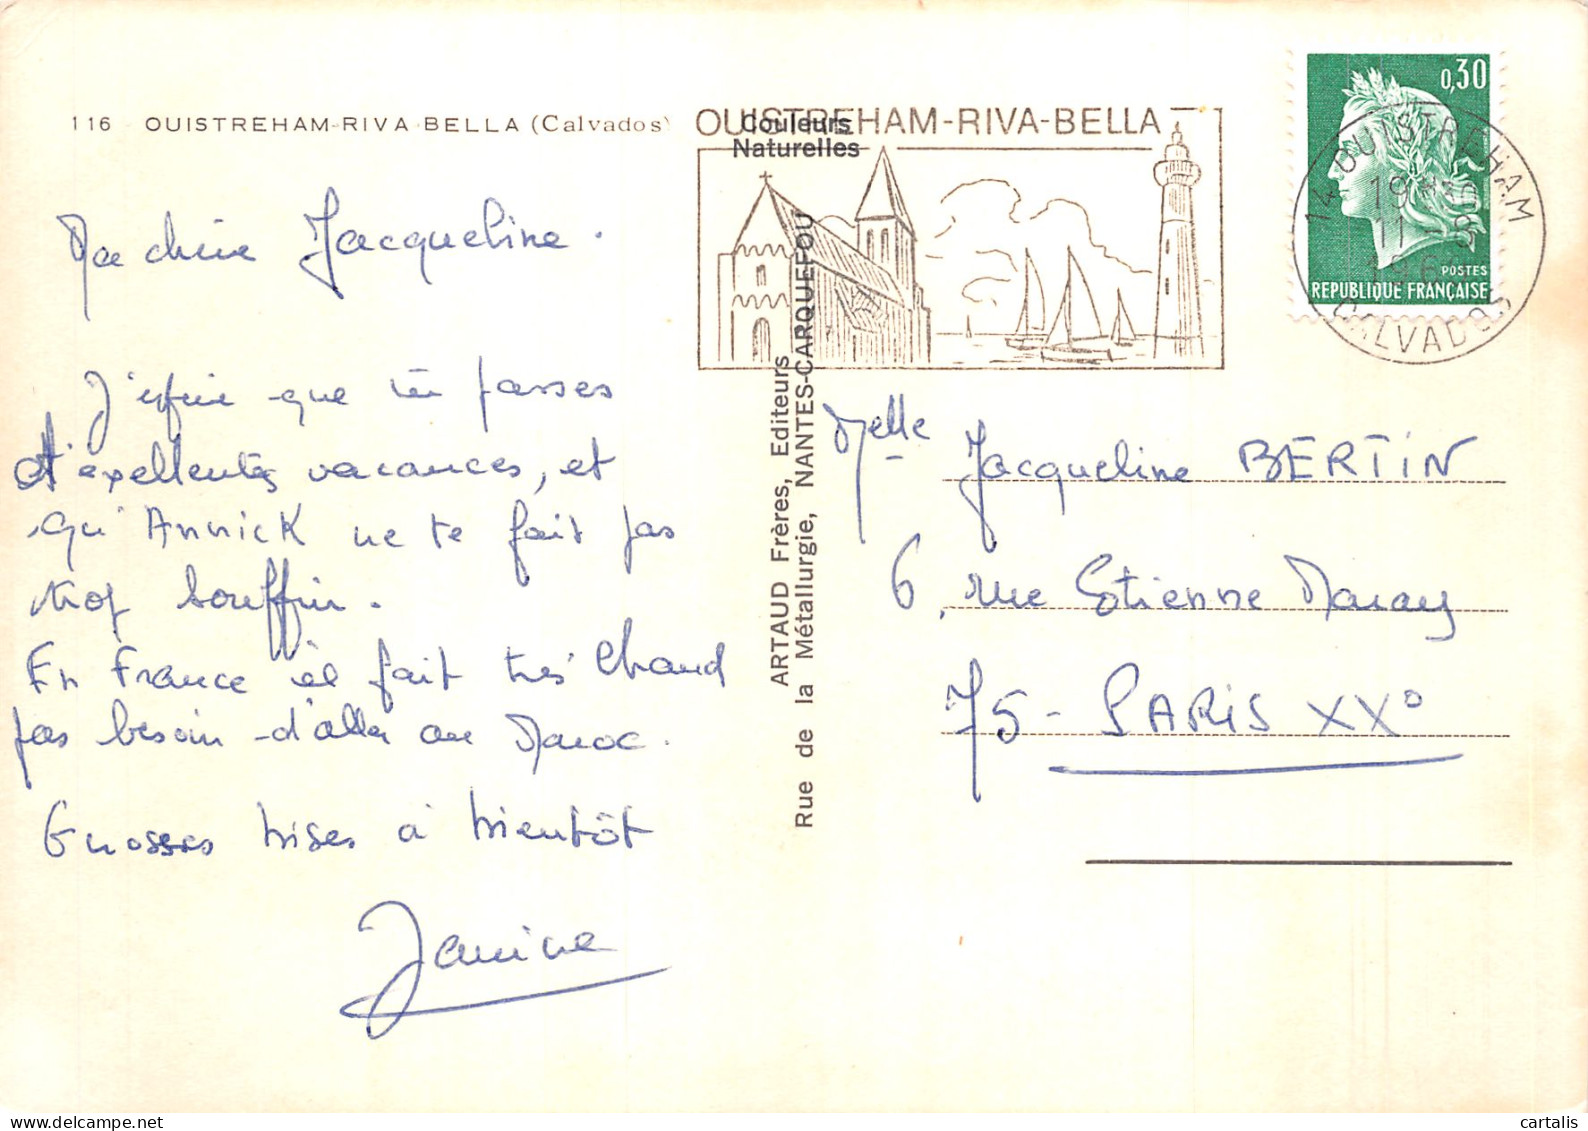 116 - OUISTREHAM-RIVA-BELLA (Calvados)
Couleurs
Naturelles
OUISTREHAM-RIVA-BELLA
0,30
POSTES
REPUBLIQUE FRANÇAISE
14 OUISTREHAM
19H30
11 -8
CALVADOS
Ma chère Jacqueline.
J'espère que tu passes
d'excellentes vacances, et
qu'Annick ne te fait pas
trop souffrir.
En France il fait très chaud
pas besoin d'aller au Maroc.
Grosses bises à bientôt
Janine
ARTAUD Frères, Editeurs
Rue de la Métallurgie, NANTES-CARQUEFOU
Melle Jacqueline BERTIN
6, rue Etienne Marey
75 - PARIS XX°
cartalis